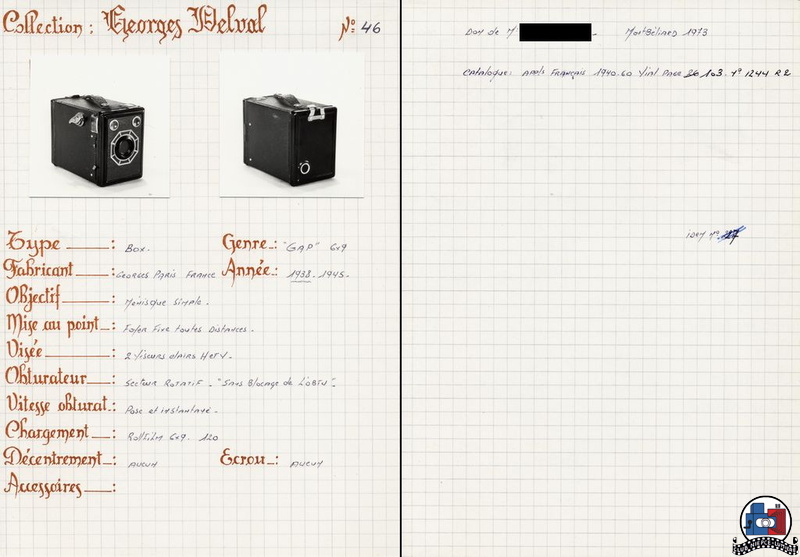 Collection : Georges Delval Nº 46
Type : Box.
Genre : "GAP" 6x9
Fabricant : Georges Paris France
Année : 1938. 1945.
Objectif : Ménisque simple.
Mise au point : Foyer Fixe toutes Distances.
Visée : 2 Viseurs clairs H et V.
Obturateur : Secteur Rotatif. "Sans Blocage de L'OBTU".
Vitesse obturat. : Pose et instantané.
Chargement : Rollfilm 6x9. 120
Décentrement : AUCUN
Ecrou : AUCUN
Accessoires :
Don de Mr Montbéliard 1973
Catalogue: App'ls Français 1940.60 Vial Page 103. Nº 1244 R2
idem Nº